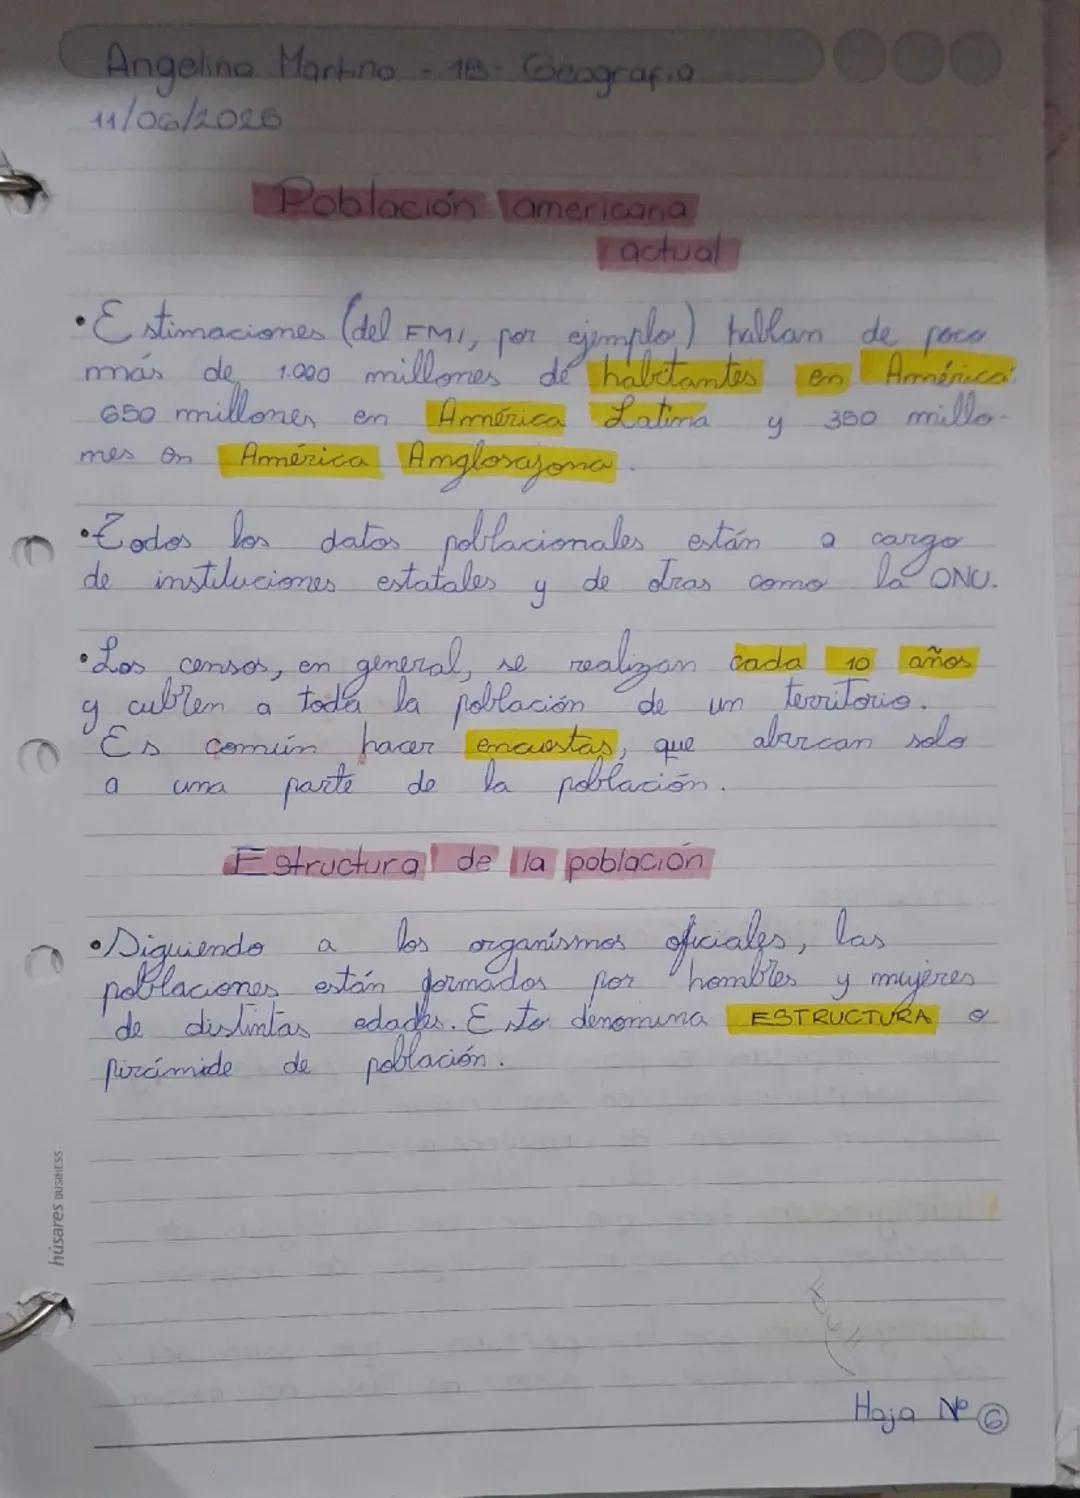 Angelina Martino - 1B - Geografía
11/06/2026
Población americana
actual
• Estimaciones (del FMI, por ejemplo) hablan de poco
más de 1.000 millones de habitantes en América:
650 millones en América Latina y 350 millo-
nes en América Anglosajona.
• Todos los datos poblacionales están a cargo
de instituciones estatales y de otras como la ONU.
• Los censos, en general, se realizan cada 10 años
y cubren a toda la población de un territorio.
Es común hacer encuestas, que abarcan solo
a una parte de la población.
Estructura de la población
• Siguiendo a los organismos oficiales, las
poblaciones están formados por hombres y mujeres
de distintas edades. Esto denomina ESTRUCTURA o
pirámide de población.
húsares BUSINESS
Hoja Nº 6